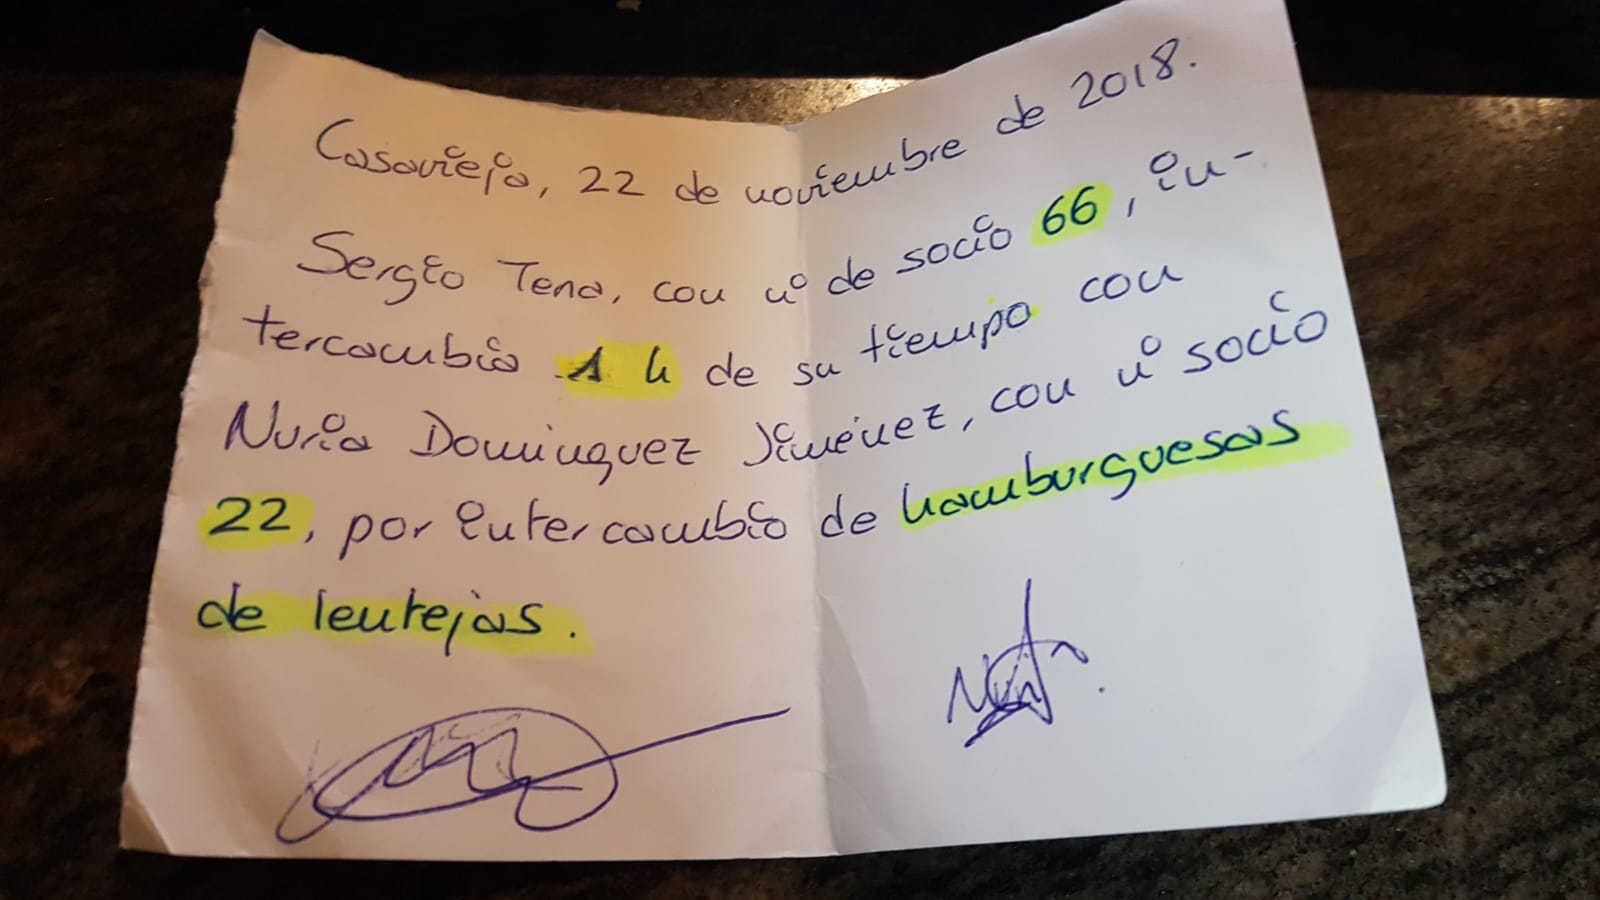 Casavieja, 22 de noviembre de 2018.
Sergio Tena, con nº de socio 66, in-
tercambio 1 h de su tiempo con
Nuria Dominguez Jiménez, con nº socio
22, por intercambio de hamburguesas
de lentejas.